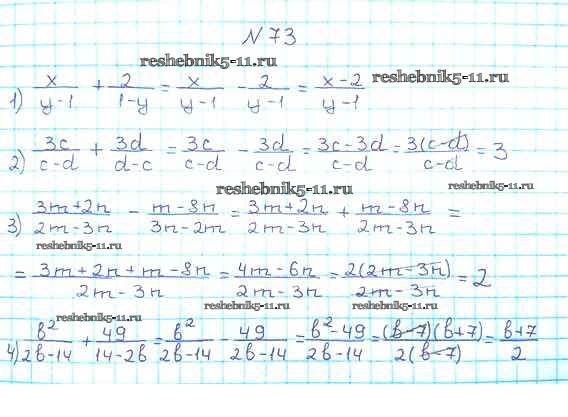 N 73
reshebnik5-11.ru
1) x/(y-1) + 2/(1-y) = x/(y-1) - 2/(y-1) = (x-2)/(y-1)
reshebnik5-11.ru
2) 3c/(c-d) + 3d/(d-c) = 3c/(c-d) - 3d/(c-d) = (3c-3d)/(c-d) = 3(c-d)/(c-d) = 3
reshebnik5-11.ru
3) (3m+2n)/(2m-3n) - (m-8n)/(3n-2m) = (3m+2n)/(2m-3n) + (m-8n)/(2m-3n) =
reshebnik5-11.ru
= (3m+2n+m-8n)/(2m-3n) = (4m-6n)/(2m-3n) = 2(2m-3n)/(2m-3n) = 2
reshebnik5-11.ru
reshebnik5-11.ru
4) b²/(2b-14) + 49/(14-2b) = b²/(2b-14) - 49/(2b-14) = (b²-49)/(2b-14) = (b-7)(b+7)/2(b-7) = (b+7)/2